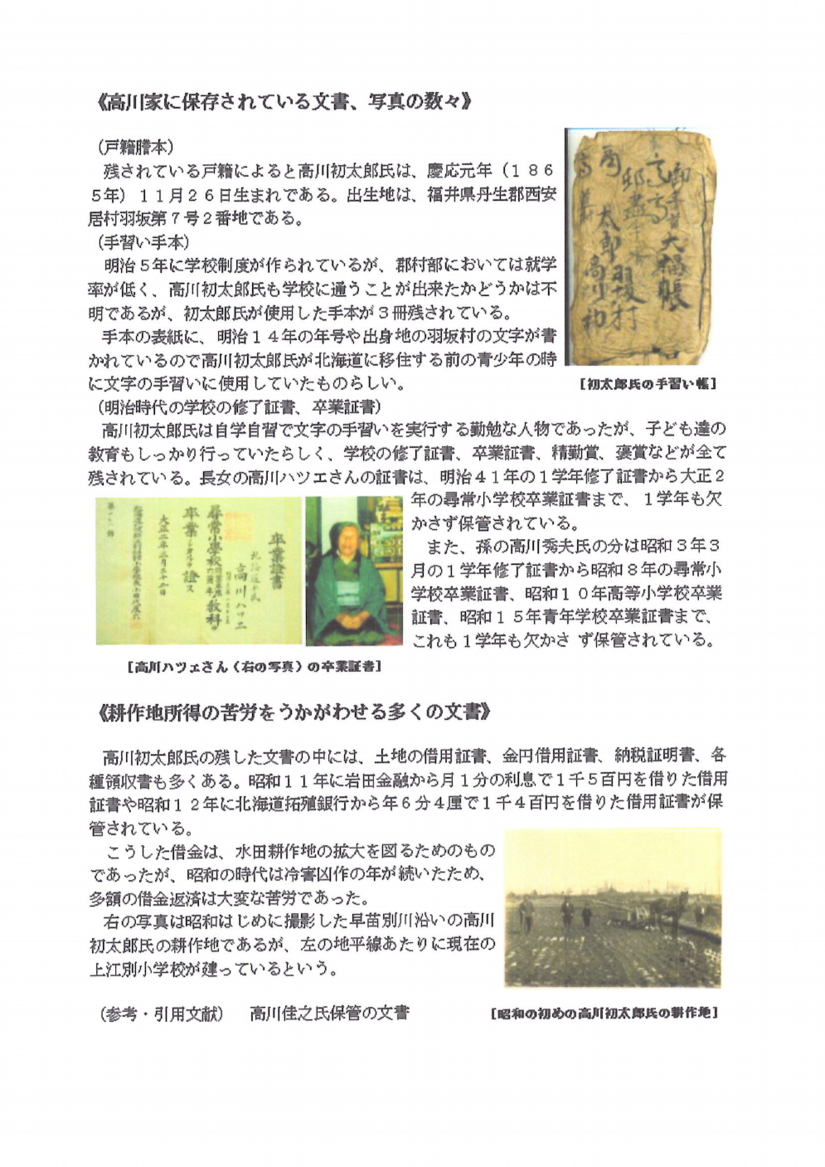 《高川家に保存されている文書、写真の数々》
(戸籍謄本)
残されている戸籍によると高川初太郎氏は、慶応元年(186
5年)11月26日生まれである。出生地は、福井県丹生郡西安
居村羽坂第7号2番地である。
(手習い手本)
明治5年に学校制度が作られているが、郡村部においては就学
率が低く、高川初太郎氏も学校に通うことが出来たかどうかは不
明であるが、初太郎氏が使用した手本が3冊残されている。
手本の表紙に、明治14年の年号や出身地の羽坂村の文字が書
かれているので高川初太郎氏が北海道に移住する前の青少年の時
に文字の手習いに使用していたものらしい。
[初太郎氏の手習い帳]
(明治時代の学校の修了証書、卒業証書)
高川初太郎氏は自学自習で文字の手習いを実行する勤勉な人物であったが、子ども達の
教育もしっかり行っていたらしく、学校の修了証書、卒業証書、精勤賞、褒賞などが全て
残されている。長女の高川ハツエさんの証書は、明治41年の1学年修了証書から大正2
年の尋常小学校卒業証書まで、1学年も欠
かさず保管されている。
また、孫の高川秀夫氏の分は昭和3年3
月の1学年修了証書から昭和8年の尋常小
学校卒業証書、昭和10年高等小学校卒業
証書、昭和15年青年学校卒業証書まで、
これも1学年も欠かさ ず保管されている。
卒業證書
高川ハツヱ
尋常小學校ノ教科ヲ
卒業シタルヲ證ス
大正二年三月二十四日
[高川ハツェさん(右の写真)の卒業証書]
《耕作地所得の苦労をうかがわせる多くの文書》
高川初太郎氏の残した文書の中には、土地の借用証書、金円借用証書、納税証明書、各
種領収書も多くある。昭和11年に岩田金融から月1分の利息で1千5百円を借りた借用
証書や昭和12年に北海道拓殖銀行から年6分4厘で1千4百円を借りた借用証書が保
管されている。
こうした借金は、水田耕作地の拡大を図るためのもの
であったが、昭和の時代は冷害凶作の年が続いたため、
多額の借金返済は大変な苦労であった。
右の写真は昭和はじめに撮影した早苗別川沿いの高川
初太郎氏の耕作地であるが、左の地平線あたりに現在の
上江別小学校が建っているという。
(参考・引用文献) 高川佳之氏保管の文書
[昭和の初めの高川初太郎氏の耕作地]